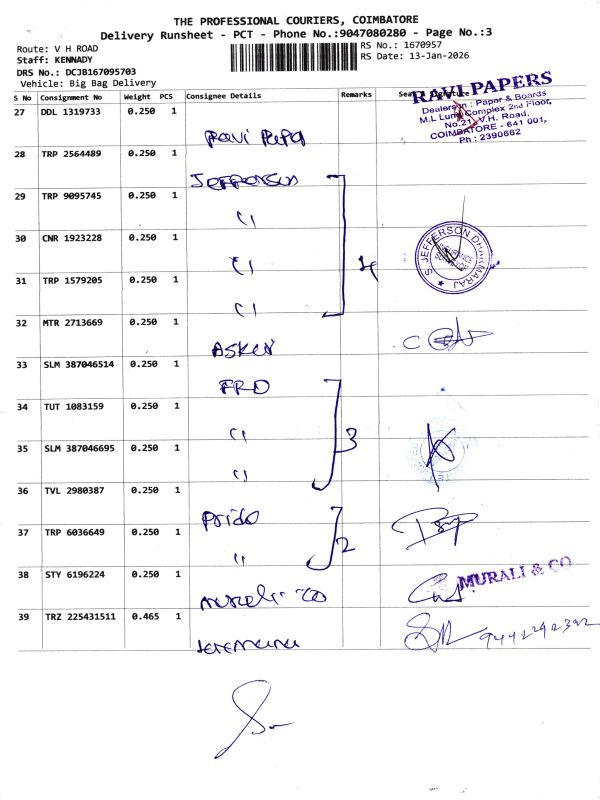 THE PROFESSIONAL COURIERS, COIMBATORE
Delivery Runsheet - PCT - Phone No.:9047080280 - Page No.:3
Route: V H ROAD
RS No.: 1670957
Staff: KENNADY
RS Date: 13-Jan-2026
DRS No.: DCJB167095703
Vehicle: Big Bag Delivery
S No Consignment No Weight PCS Consignee Details Remarks Seal & Signature
27 DDL 1319733 0.250 1
RAVI PAPERS
Dealers in : Paper & Boards
M.L Luna Complex 2nd Floor,
No.21, V.H. Road,
COIMBATORE - 641 001,
Ph : 2390662
28 TRP 2564489 0.250 1
Jefferson
29 TRP 9095745 0.250 1
30 CNR 1923228 0.250 1
S. JEFFERSON DHARMARAJ
4
31 TRP 1579205 0.250 1
32 MTR 2713669 0.250 1
33 SLM 387046514 0.250 1
34 TUT 1083159 0.250 1
3
35 SLM 387046695 0.250 1
36 TVL 2980387 0.250 1
Prido
37 TRP 6036649 0.250 1
2
38 STY 6196224 0.250 1
MURALI & CO
39 TRZ 225431511 0.465 1
9442292392